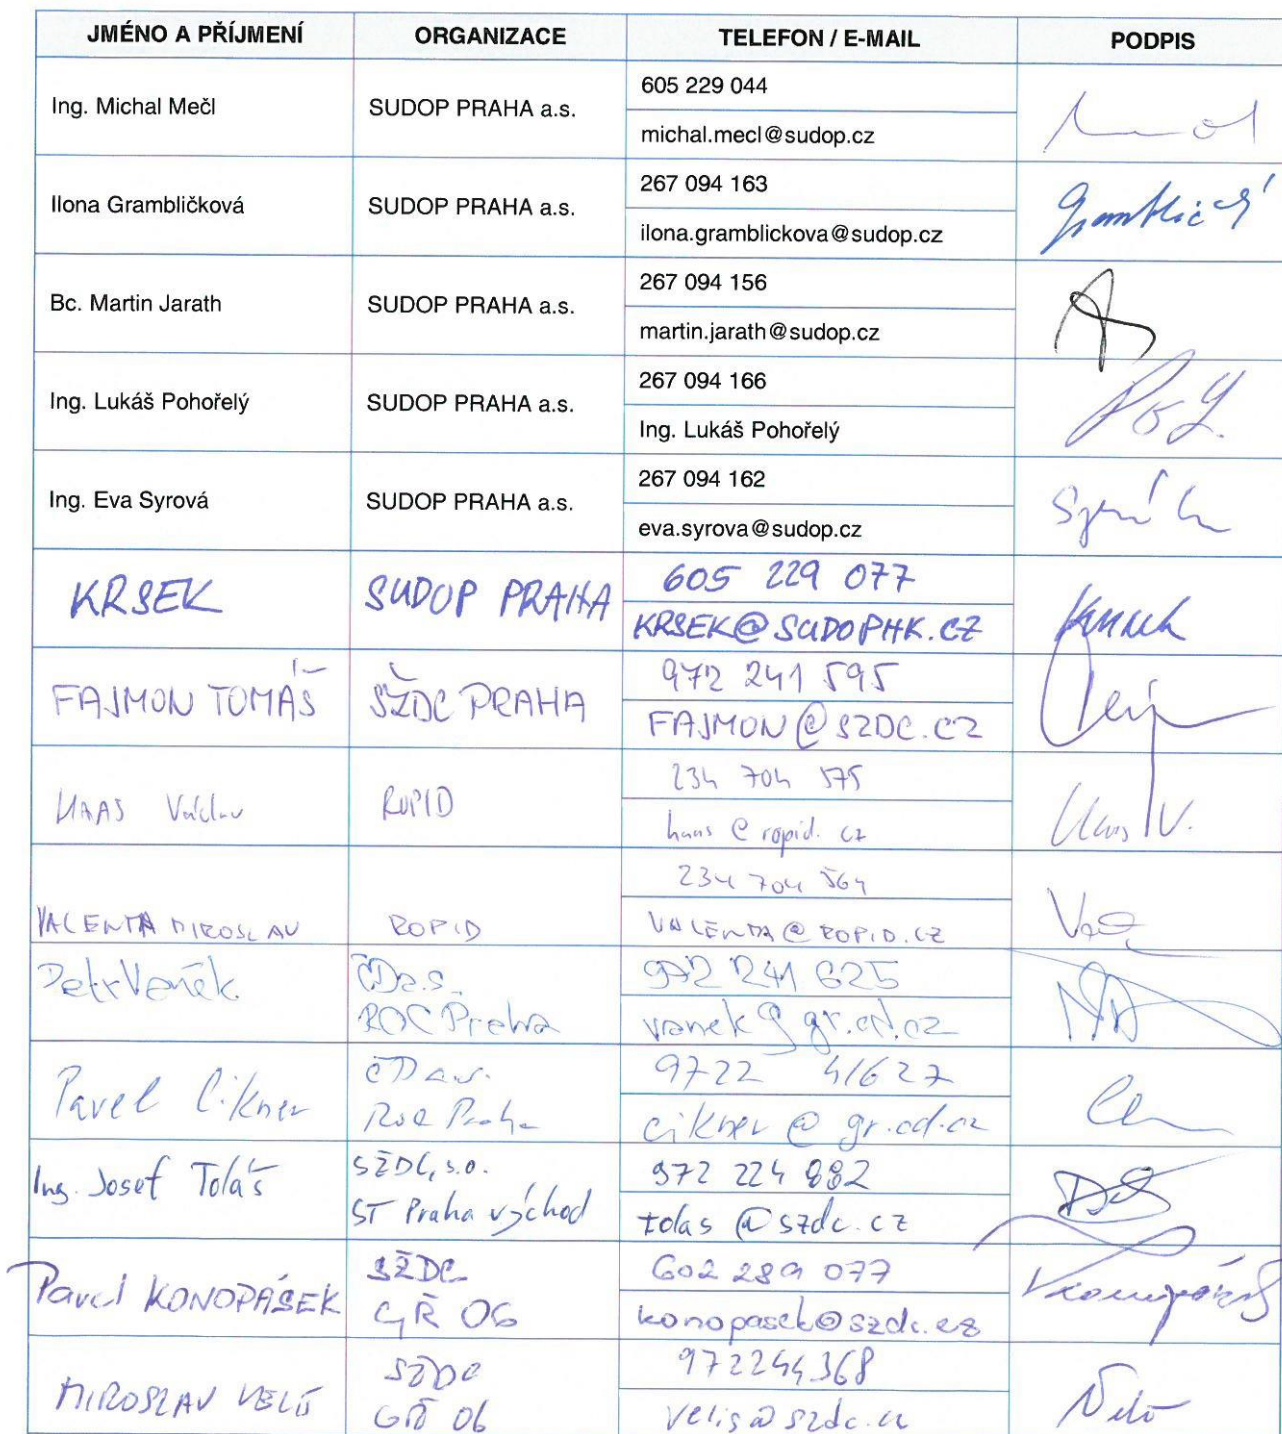 JMÉNO A PŘÍJMENÍ ORGANIZACE TELEFON / E-MAIL PODPIS
Ing. Michal Mečl SUDOP PRAHA a.s. 605 229 044
michal.mecl@sudop.cz
Ilona Grambličková SUDOP PRAHA a.s. 267 094 163
ilona.gramblickova@sudop.cz
Bc. Martin Jarath SUDOP PRAHA a.s. 267 094 156
martin.jarath@sudop.cz
Ing. Lukáš Pohořelý SUDOP PRAHA a.s. 267 094 166
Ing. Lukáš Pohořelý
Ing. Eva Syrová SUDOP PRAHA a.s. 267 094 162
eva.syrova@sudop.cz
KRSEK SUDOP PRAHA 605 229 077
KRSEK@SUDOPHK.CZ
FAJMON TOMÁŠ SŽDC PRAHA 972 241 595
FAJMON@SZDC.CZ
HAAS Václav ROPID 234 704 575
haas@ropid.cz
VALENTA MIROSLAV ROPID 234 704 564
VALENTA@ROPID.CZ
Petr Vaněk ČD a.s. 972 241 625
ROC Praha vanek@gr.cd.cz
Pavel Cikner ČD a.s. 9722 41627
ROC Praha cikner@gr.cd.cz
Ing. Josef Toláš SŽDC, s.o. 972 224 882
ST Praha východ tolas@szdc.cz
Pavel KONOPÁSEK SŽDC 602 289 077
GŘ O6 konopasek@szdc.cz
MIROSLAV VELIŠ SŽDC 972244368
GŘ O6 velis@szdc.cz